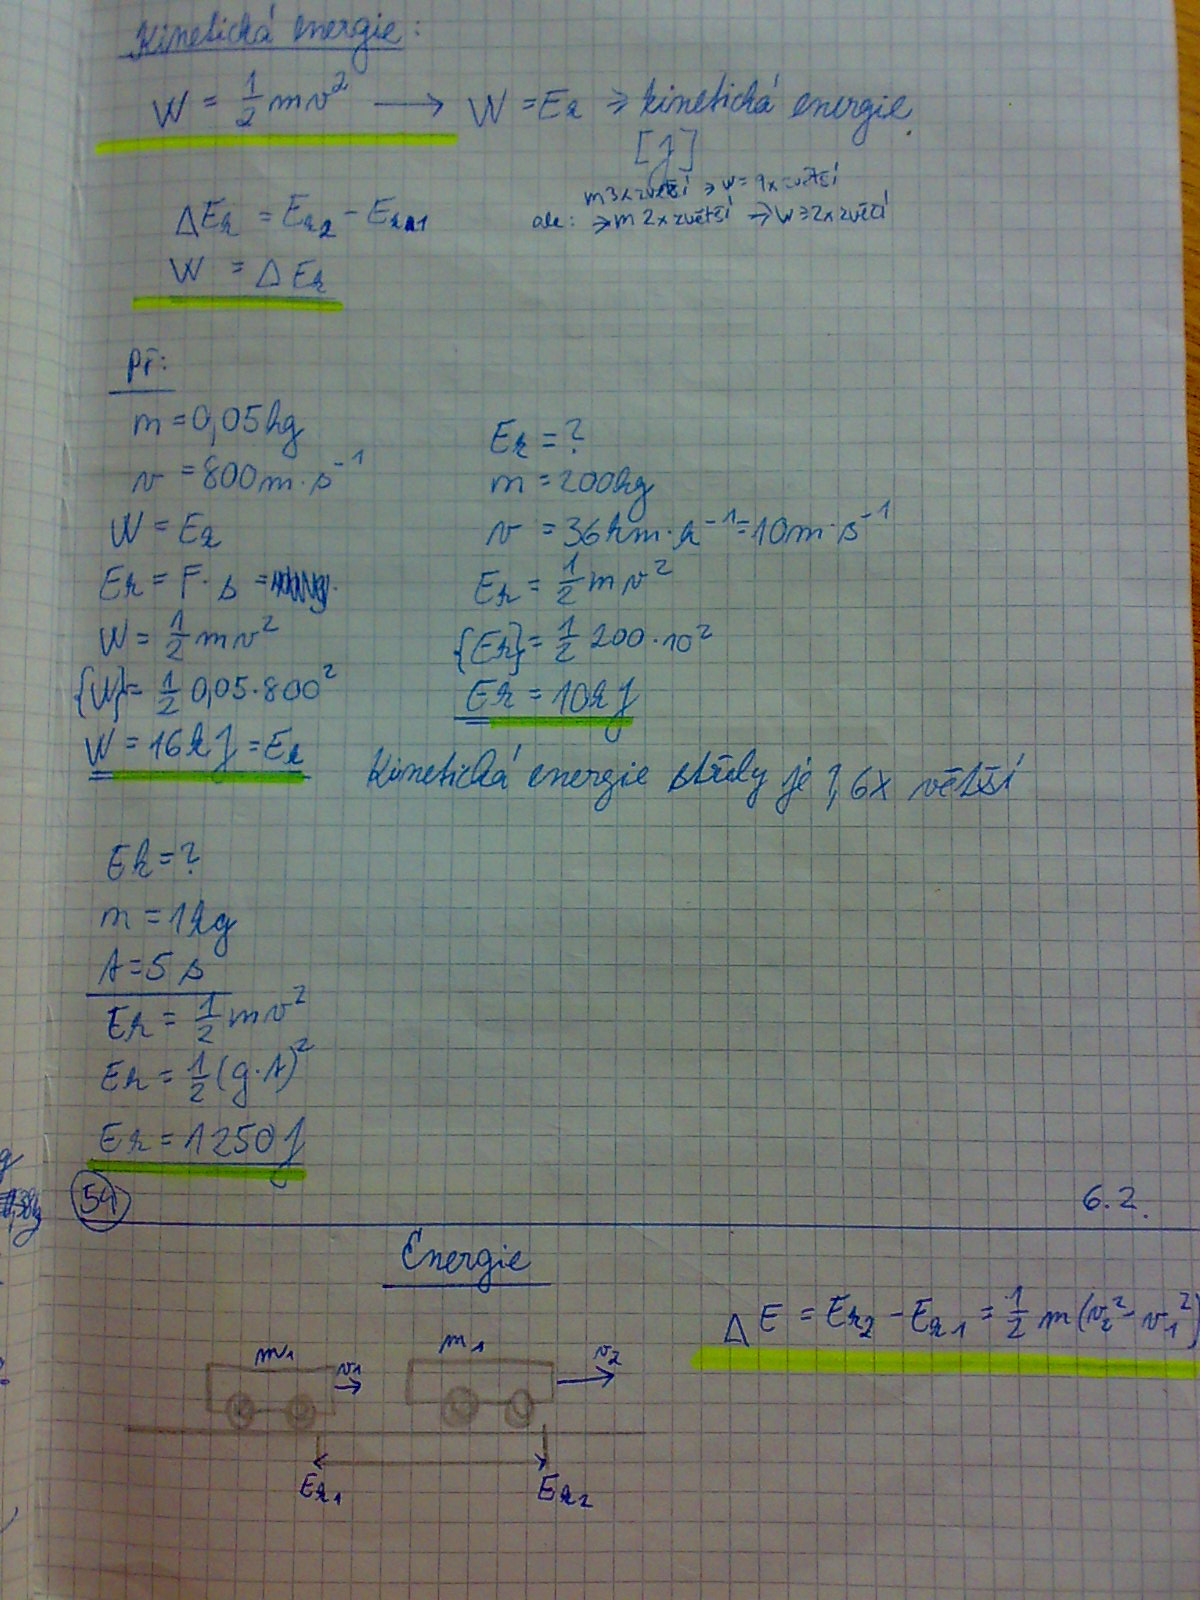 Kinetická energie:
W = 1/2 mv² → W = Ek ⇒ kinetická energie
[J]
m 3x zvětší ⇒ W = 9x zvětší
ale: ⇒ m 2x zvětší → W = 2x zvětší
ΔEk = Ek2 - Ek1
W = ΔEk
Př:
m = 0,05kg
v = 800m·s⁻¹
W = Ek
Ek = F·s =
W = 1/2 mv²
{W} = 1/2 0,05·800²
W = 16kJ = Ek
Ek = ?
m = 200kg
v = 36km·h⁻¹ = 10m·s⁻¹
Ek = 1/2 mv²
{Ek} = 1/2 200·10²
Ek = 10kJ
Kinetická energie střely je 1,6x větší
Ek = ?
m = 1kg
t = 5s
Ek = 1/2 mv²
Ek = 1/2 (g·t)²
Ek = 1250J
54
6.2.
Energie
m1 v1 m1 v2
ΔE = Ek2 - Ek1 = 1/2 m(v2² - v1²)
Ek1 Ek2